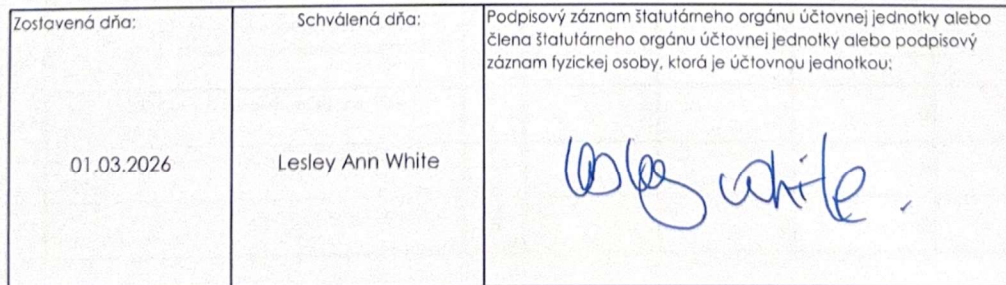 Zostavená dňa:
Schválená dňa:
Podpisový záznam štatutárneho orgánu účtovnej jednotky alebo
člena štatutárneho orgánu účtovnej jednotky alebo podpisový
záznam fyzickej osoby, ktorá je účtovnou jednotkou:
01.03.2026
Lesley Ann White
Lesley White.